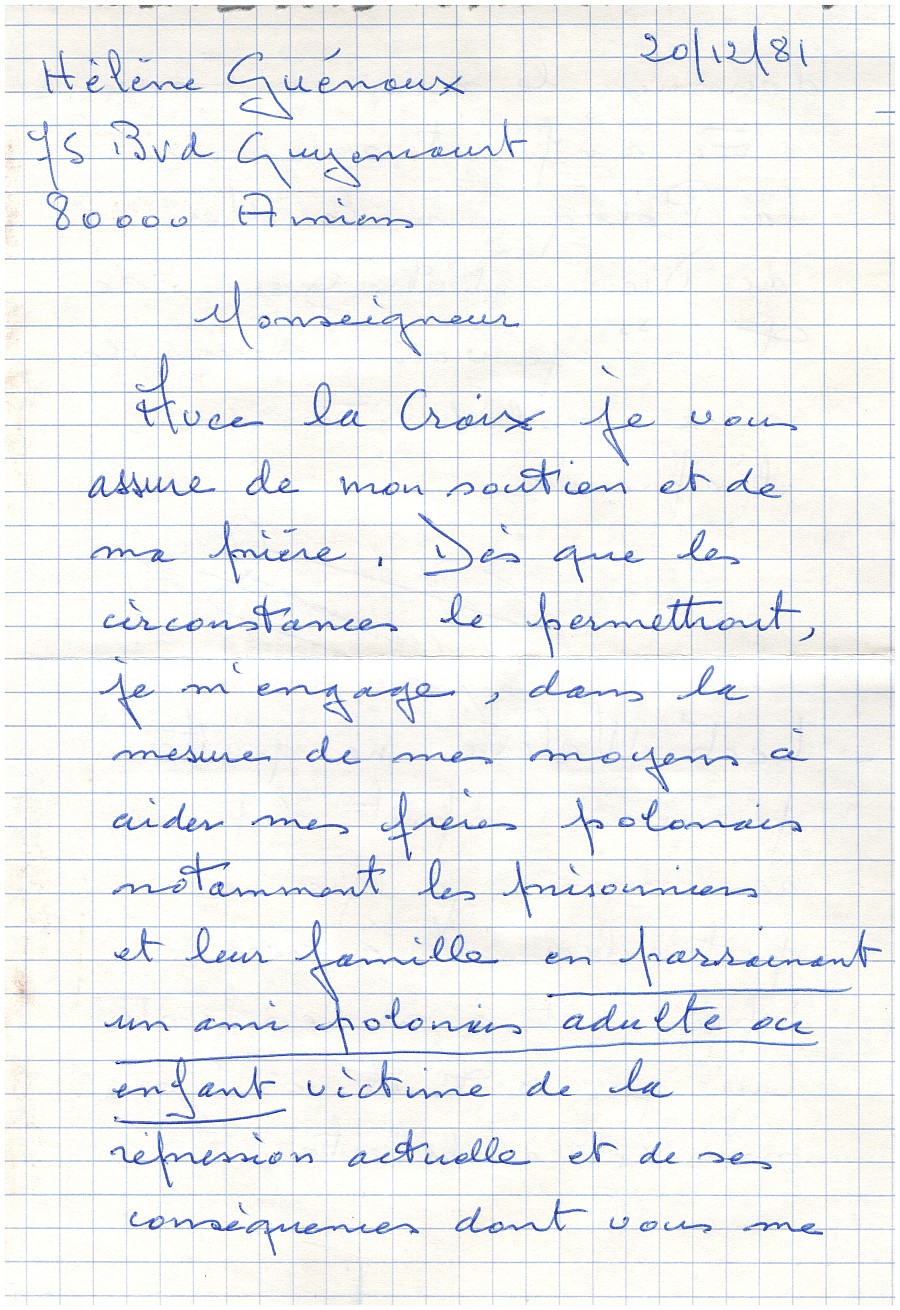 20/12/81
Hélène Guénoux
75 Bvd Guyencourt
80000 Amiens
Monseigneur
Avec la Croix je vous
assure de mon soutien et de
ma prière. Dès que les
circonstances le permettront,
je m'engage, dans la
mesure de mes moyens à
aider mes frères polonais
notamment les prisonniers
et leur famille en parrainant
un ami polonais adulte ou
enfant victime de la
répression actuelle et de ses
conséquences dont vous me